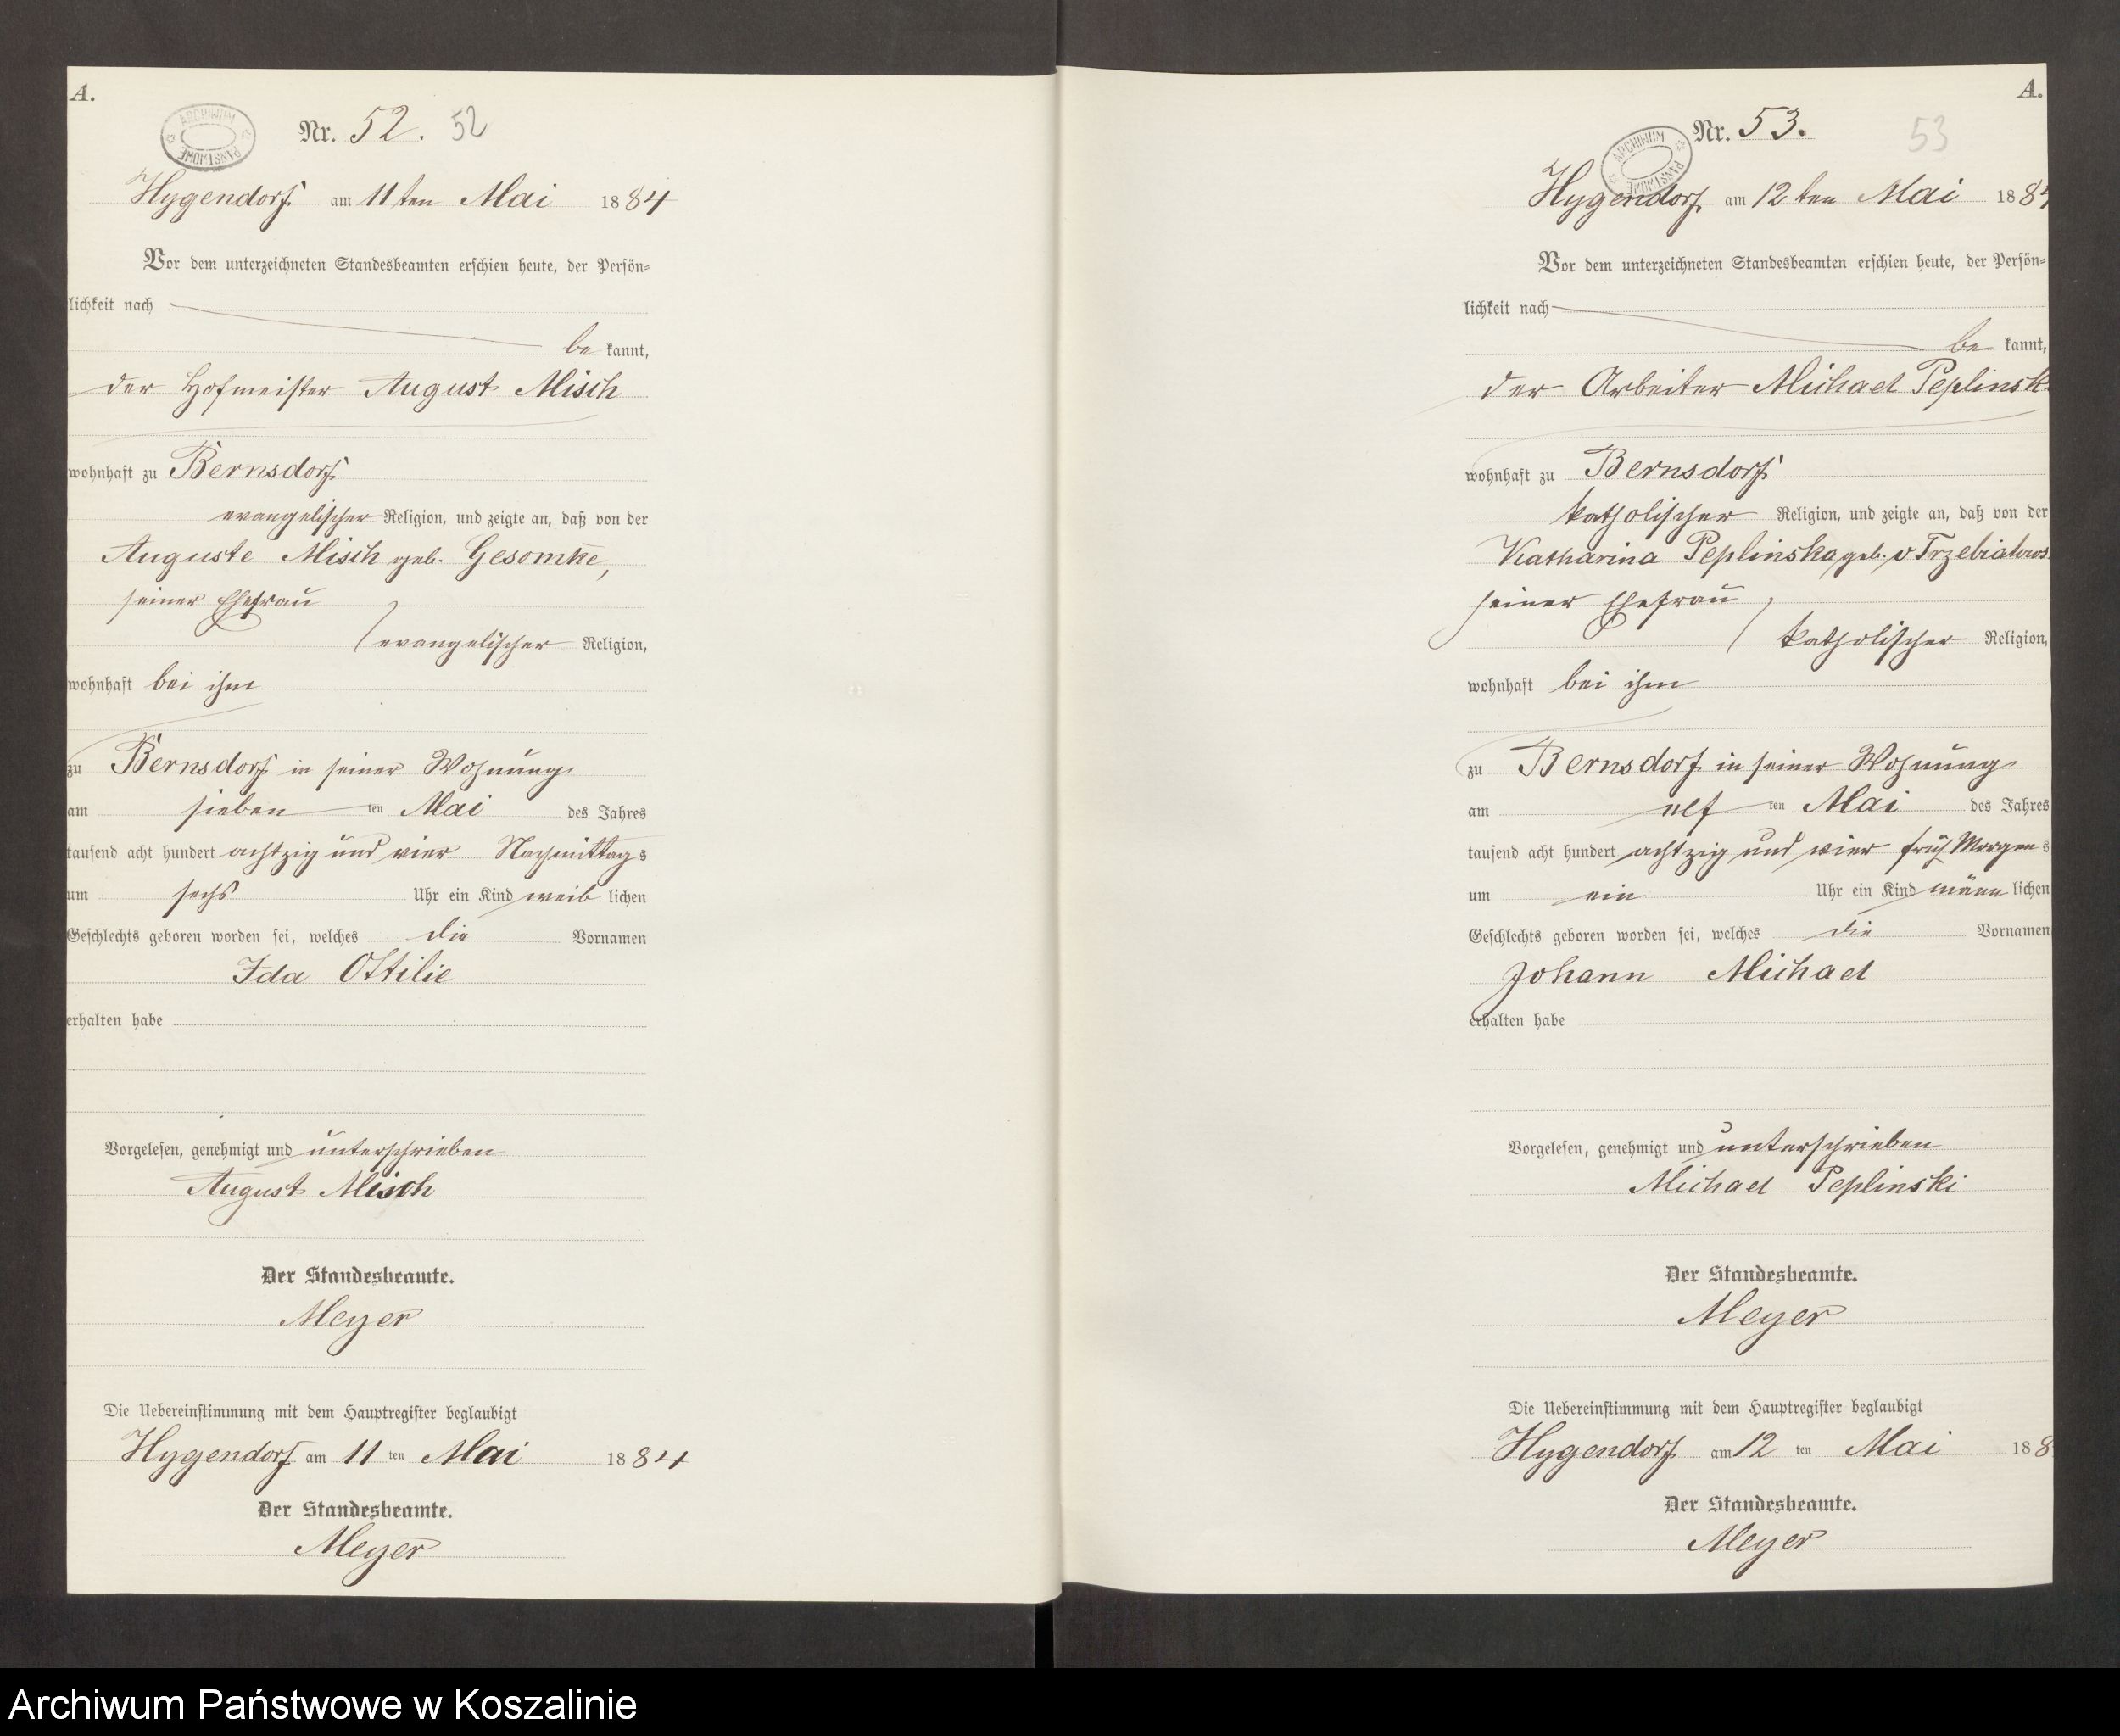 A.
ARCHIWUM PAŃSTWOWE
Nr. 52. 52
Hygendorf am 11ten Mai 1884
Vor dem unterzeichneten Standesbeamten erschien heute, der Persön-
lichkeit nach
be kannt,
der Hofmeister August Misch
wohnhaft zu Bernsdorf
evangelischer Religion, und zeigte an, daß von der
Auguste Misch geb. Gesomke,
seiner Ehefrau
evangelischer Religion,
wohnhaft bei ihm
zu Bernsdorf in seiner Wohnung
am sieben ten Mai des Jahres
tausend acht hundert achtzig und vier Nachmittags
um sechs Uhr ein Kind weib lichen
Geschlechts geboren worden sei, welches die Vornamen
Ida Ottilie
erhalten habe
Vorgelesen, genehmigt und unterschrieben
August Misch
Der Standesbeamte.
Meyer
Die Uebereinstimmung mit dem Hauptregister beglaubigt
Hygendorf am 11 ten Mai 1884
Der Standesbeamte.
Meyer
A.
ARCHIWUM PAŃSTWOWE
Nr. 53. 53
Hygendorf am 12ten Mai 1884
Vor dem unterzeichneten Standesbeamten erschien heute, der Persön-
lichkeit nach
be kannt,
der Arbeiter Michael Peplinsk
wohnhaft zu Bernsdorf
katholischer Religion, und zeigte an, daß von der
Katharina Peplinska geb. v Trzebiatows
seiner Ehefrau,
katholischer Religion,
wohnhaft bei ihm
zu Bernsdorf in seiner Wohnung
am elf ten Mai des Jahres
tausend acht hundert achtzig und vier früh Morgens
um ein Uhr ein Kind männ lichen
Geschlechts geboren worden sei, welches die Vornamen
Johann Michael
erhalten habe
Vorgelesen, genehmigt und unterschrieben
Michael Peplinski
Der Standesbeamte.
Meyer
Die Uebereinstimmung mit dem Hauptregister beglaubigt
Hygendorf am 12 ten Mai 188
Der Standesbeamte.
Meyer
Archiwum Państwowe w Koszalinie